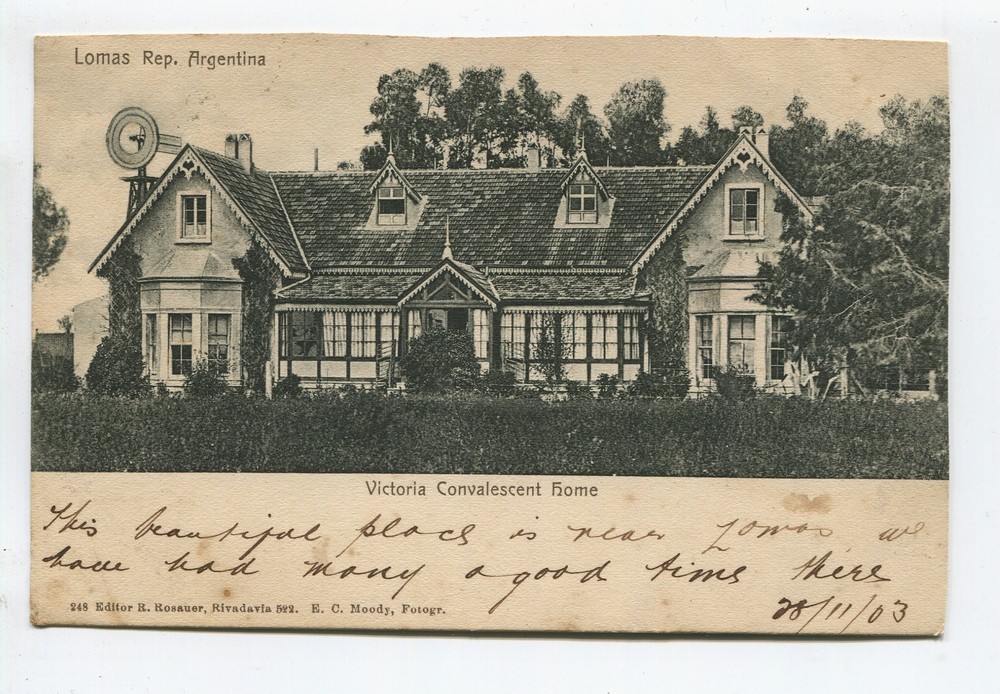 Lomas Rep. Argentina
Victoria Convalescent Home
This beautiful place is near Lomas we
have had many a good time there
248 Editor R. Rosauer, Rivadavia 522. E. C. Moody, Fotogr.
28/11/03